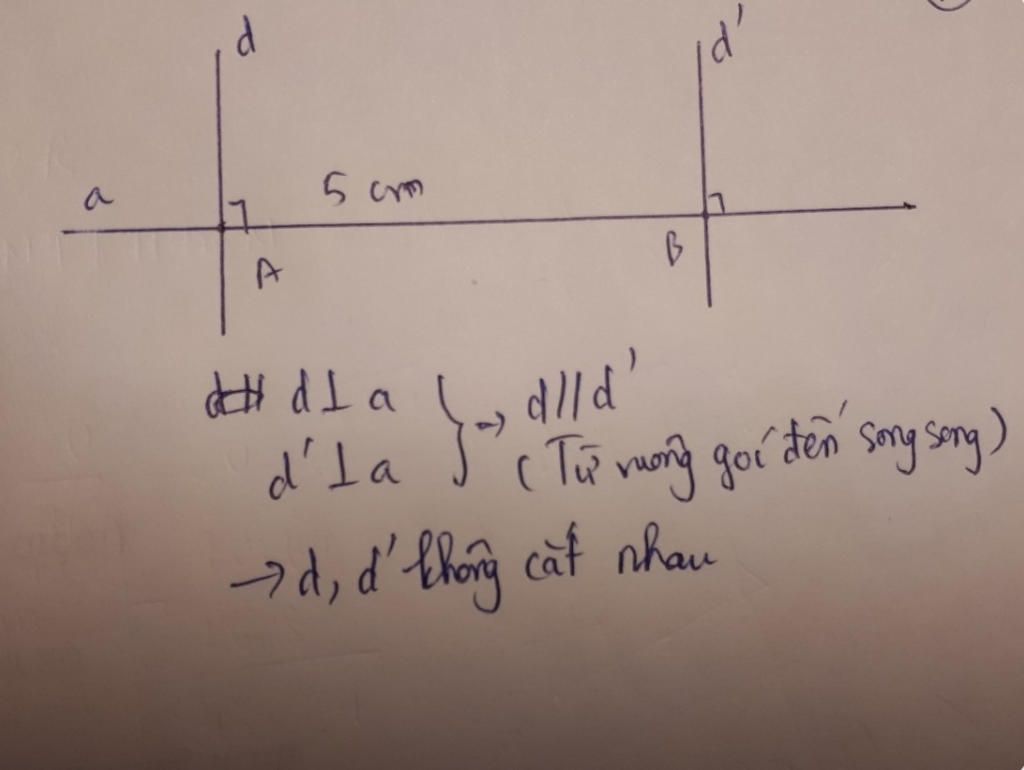 d d'
a 5 cm
A B
d ⊥ a } → d // d'
d' ⊥ a (Từ vuông goí đến song song)
→ d, d' không cắt nhau